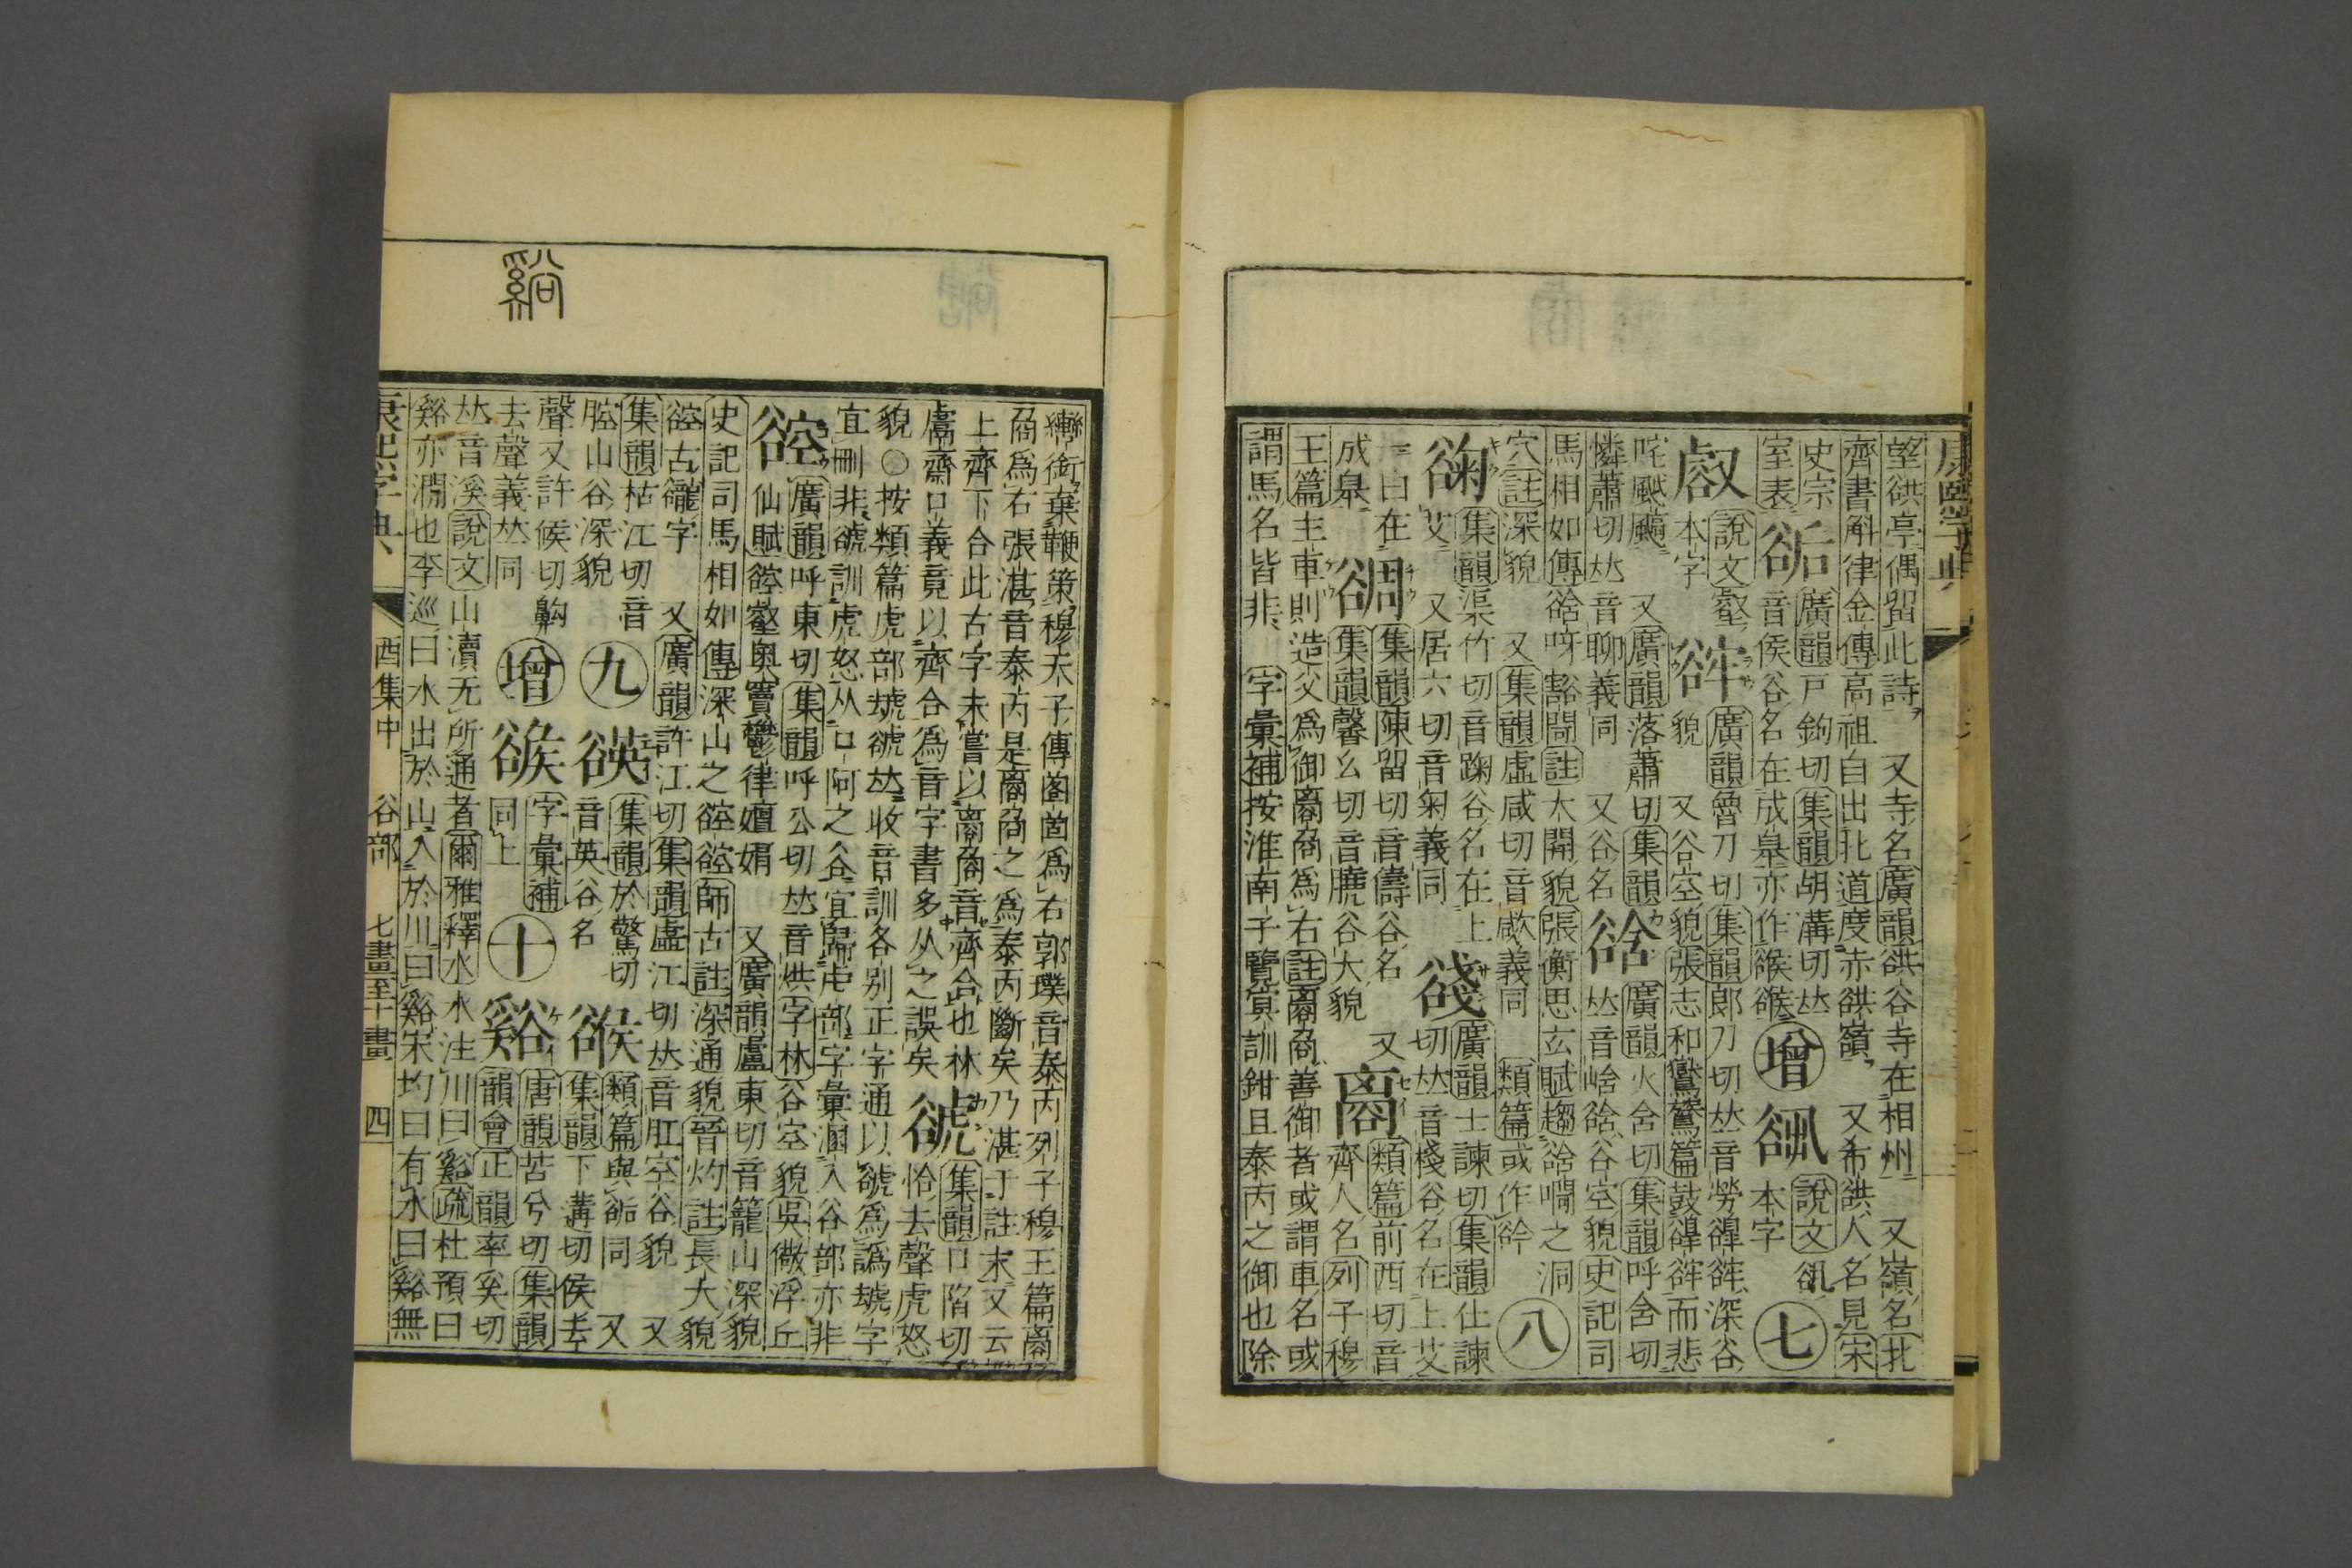 望谼亭偶留此詩又寺名廣韻谼谷寺在相州又嶺名北
齊書斛律金傳高祖自出北道度赤谼嶺又希谼人名見宋
史宗
室表
谽
廣韻戸鉤切集韻胡溝切𠀤
音侯谷名在成皋亦作㺅
增
說文
本字
七
說文壑
本字
廣韻魯刀切集韻郎刀切𠀤音勞深谷
貌又谷空貌張志和鸑鷟篇鼓而悲
又廣韻落蕭切集韻
憐蕭切𠀤音聊義同又谷名
谽
廣韻火含切集韻呼含切
𠀤音峆谽谷空貌史記司
馬相如傳谽呀豁閜註大開貌張衡思玄賦趨谽㗿之洞
穴註深貌又集韻虛咸切音歁義同類篇或作谺
八
集韻渠竹切音踘谷名在上
艾又居六切音菊義同
廣韻士諫切集韻仕諫
切𠀤音棧谷名在上艾
一曰在
成皋
集韻陳留切音儔谷名
集韻馨幺切音膮谷大貌又
類篇前西切音
齊人名列子穆
王篇主車則造父爲御𧮭𧮫爲右註𧮭𧮫善御者或謂車名或
謂馬名皆非字彙補按淮南子覽冥訓鉗且泰丙之御也除
轡銜棄鞭策穆天子傳爲右郭璞音泰丙列子穆王篇
爲右張湛音泰丙是之爲泰丙斷矣乃湛于註末又云
上齊下合此古字未嘗以音齊合也林
鬳齋口義竟以齊合爲音字書多从之誤矣
集韻口陷切
恰去聲虎怒
貌○按類篇虎部𠀤收音訓各別正字通以爲譌字
宜刪非訓虎怒从口阿之谷宜歸虍部字彙溷入谷部亦非
谾
廣韻呼東切集韻呼公切𠀤音烘字林谷空貌吳儆浮丘
仙賦谾壑奧竇鬱律嬗娟又廣韻盧東切音籠山深貌
史記司馬相如傳深山之谾谾師古註深通貌晉灼註長大貌
谾古字又廣韻許江切集韻虛江切𠀤音肛空谷貌又
集韻枯江切音
腔山谷深貌
九
集韻於驚切
音英谷名
類篇與同又
集韻下溝切侯去
聲又許候切齁
去聲義𠀤同
增
字彙補
同上
十
谿
唐韻苦兮切集韻
韻會正韻牽奚切
𠀤音溪說文山瀆无所通者爾雅釋水水注川曰谿疏杜預曰
谿亦澗也李巡曰水出於山入於川曰谿宋均曰有水曰谿無
康熙字典
酉集中
谷部
七畫至十畫
四
谿
康熙字典